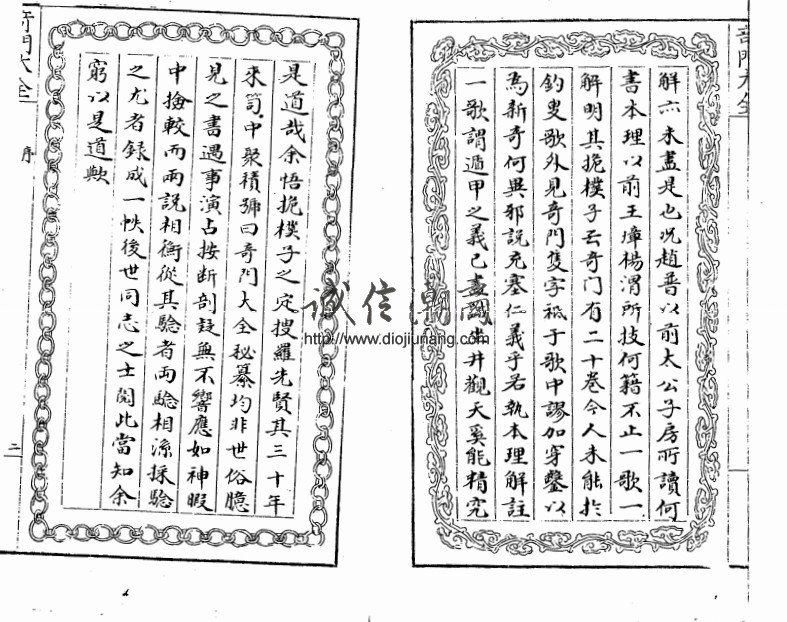 奇門大全
解亦未盡是也況趙普以前太公子房所讀何
書本理以前王璋楊渭所技何籍不止一歌一
解明其抱樸子云奇门有二十卷今人未能於
釣叟歌外見奇門隻字祗于歌中謬加穿鑿以
為新奇何異邪說充塞仁義乎若執本理解註
一歌謂遁甲之義已盡坐井觀天奚能精究
是道哉余悟抱樸子之定搜羅先賢其三十年
來笥中聚積號曰奇門大全秘纂均非世俗臆
見之書遇事演占按断剖疑無不響應如神暇
中撿較而兩說相衡從其驗者両騐相源採騐
之尤者録成一帙後世同志之士閱此當知余
窮以是道歟
奇門大全
序
二
诚信潮阁
http://www.diojiunang.com